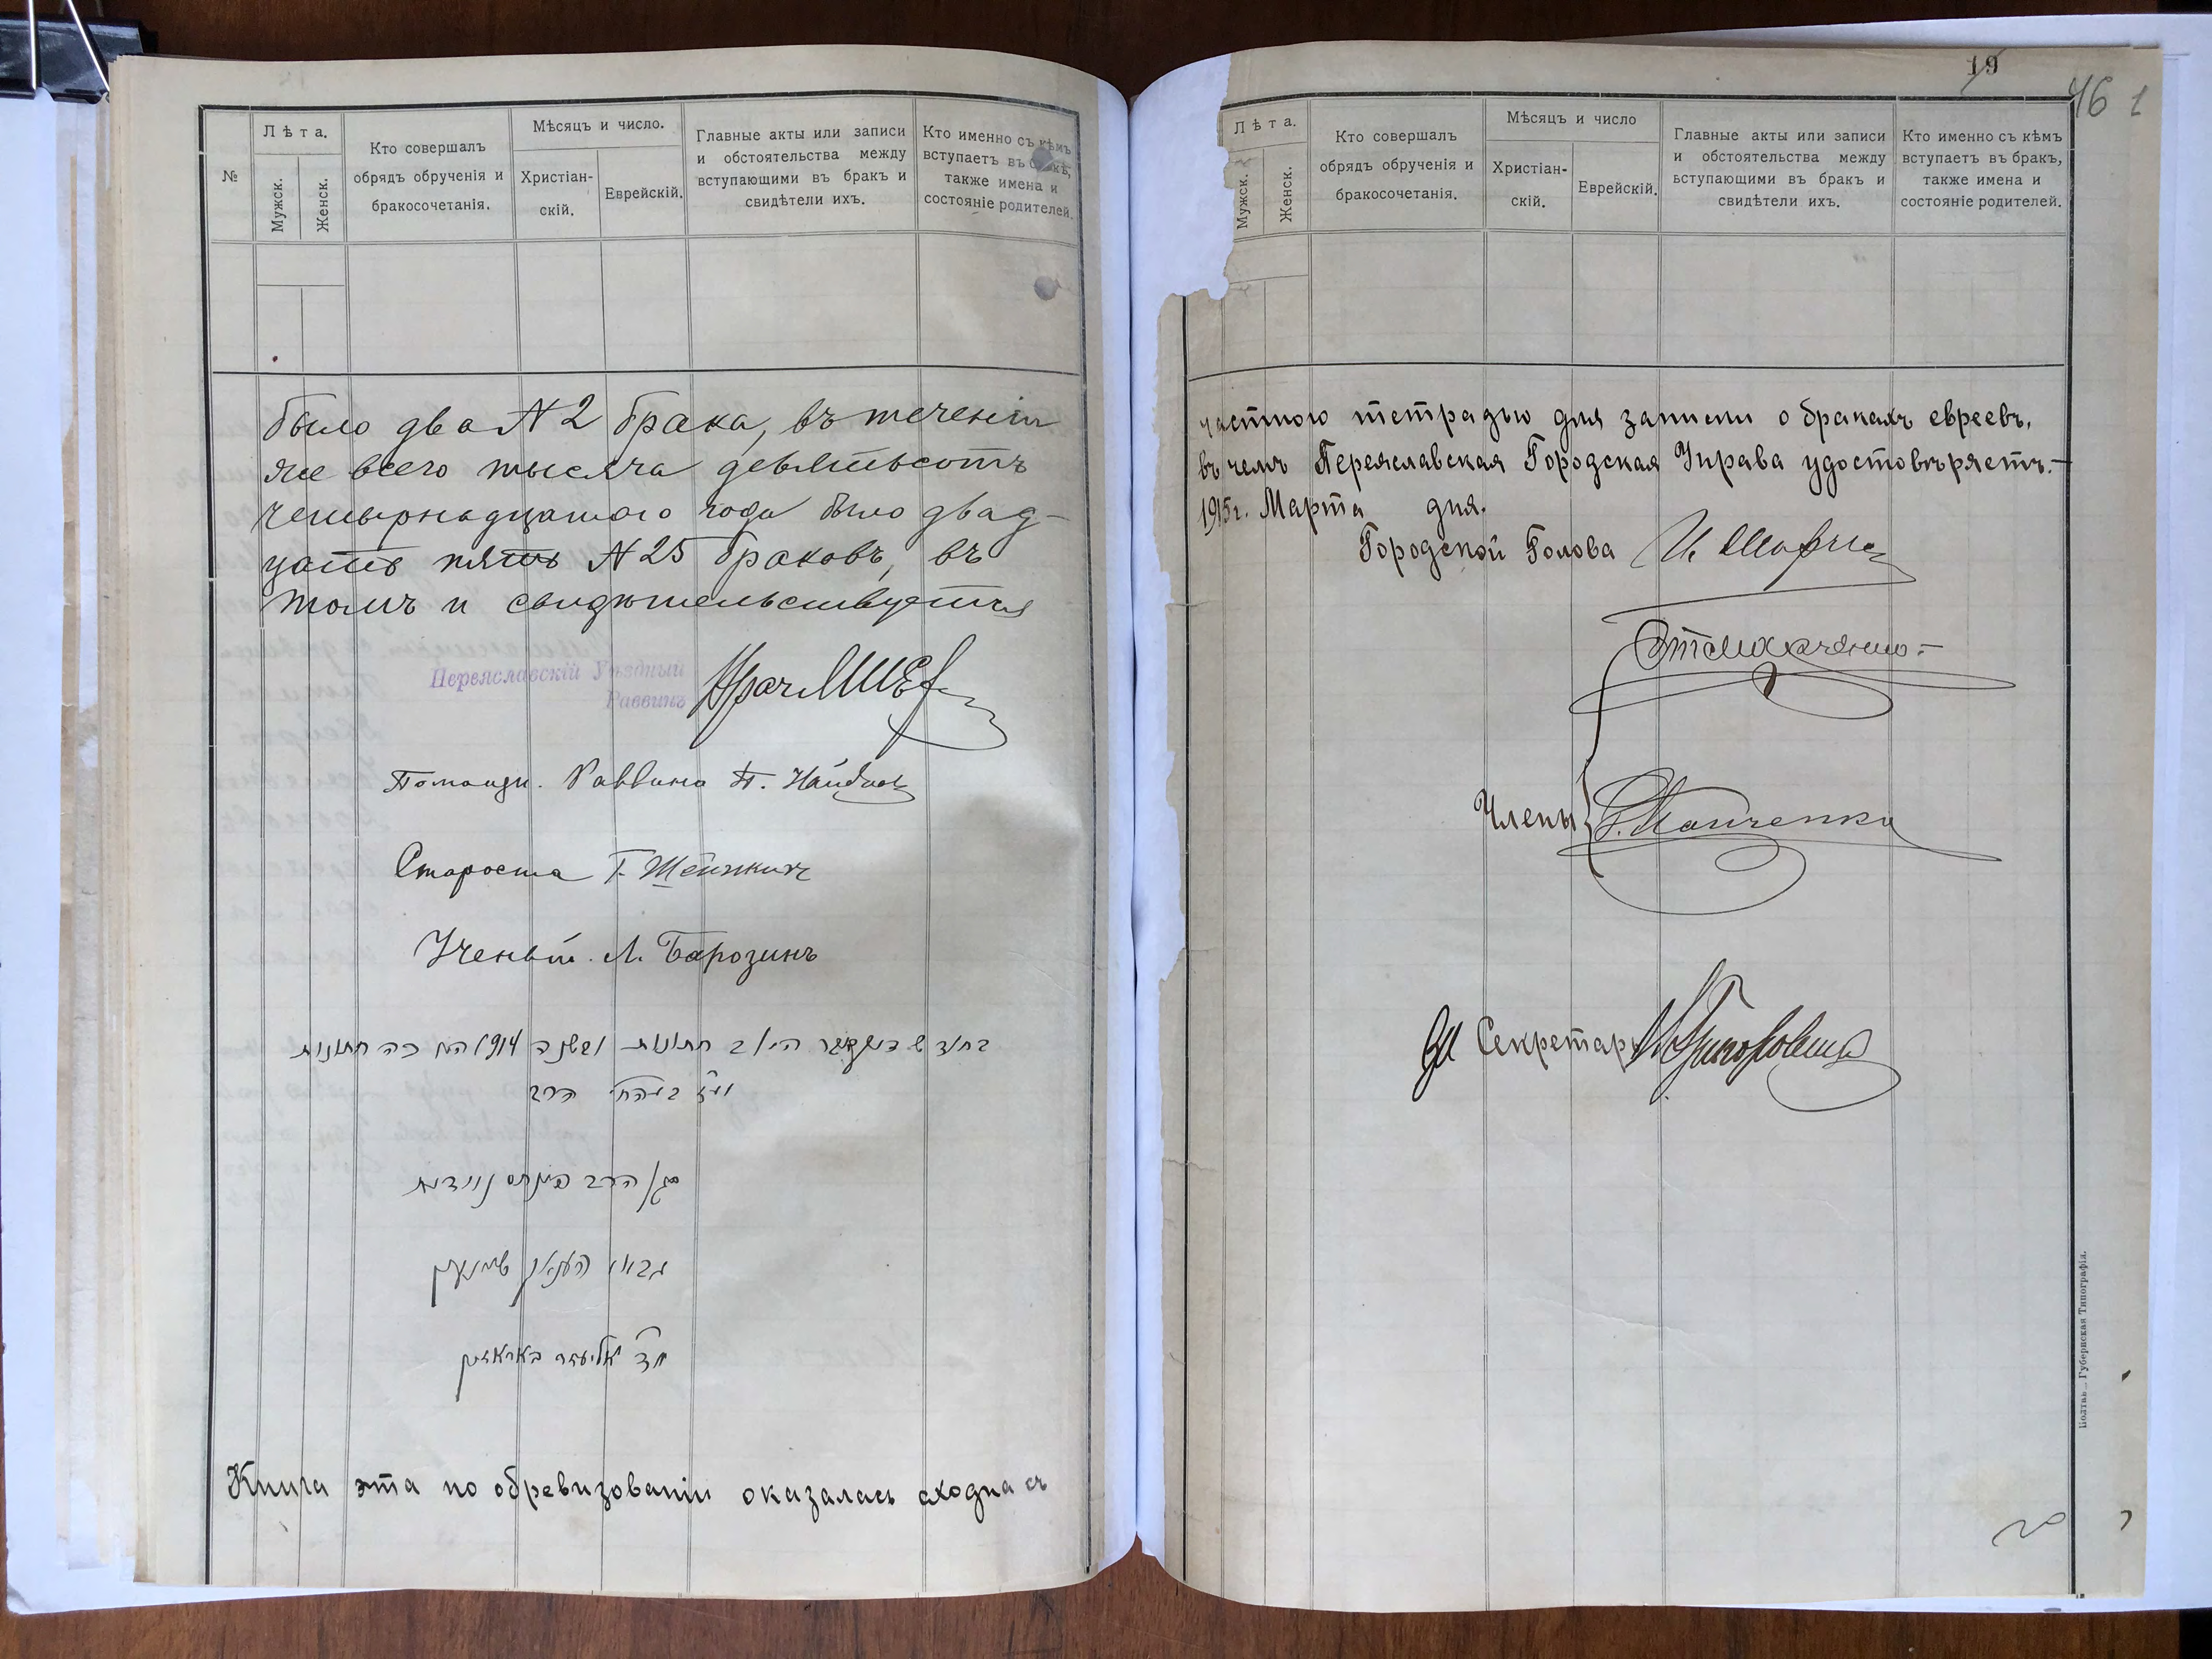 №
Лѣта.
Мужск.
Женск.
Кто совершалъ
обрядъ обрученія и
бракосочетанія.
Мѣсяцъ и число.
Христіан-
скій.
Еврейскій.
Главные акты или записи
и обстоятельства между
вступающими въ бракъ и
свидѣтели ихъ.
Кто именно съ кѣмъ
вступаетъ въ бракъ,
также имена и
состояніе родителей.
было два N 2 брака, въ теченіи
же всего тысяча девятьсотъ
четырнадцатого года было двад-
цать пять N 25 браковъ, въ
томъ и свидѣтельствуется
Переяславскій Уѣздный
Раввинъ
Помощн. Раввина П.
Староста Г. Шейнкинъ
Ученый Л. Барозинъ
חתונות ובשנה 1914 הי׳ כה חתונות
הרב
הרב פינחס
גבאי
אליעזר באראזין
Книга эта по обревизованіи оказалась сходна съ
19
46
Лѣта.
Мужск.
Женск.
Кто совершалъ
обрядъ обрученія и
бракосочетанія.
Мѣсяцъ и число
Христіан-
скій.
Еврейскій.
Главные акты или записи
и обстоятельства между
вступающими въ бракъ и
свидѣтели ихъ.
Кто именно съ кѣмъ
вступаетъ въ бракъ,
также имена и
состояніе родителей.
частною тетрадью для записи о бракахъ евреевъ,
въ чемъ Переяславская Городская Управа удостовѣряетъ.-
1915 г. Марта дня.
Городской Голова
Члены
Секретарь
Полтава _ Губернская Типографія.